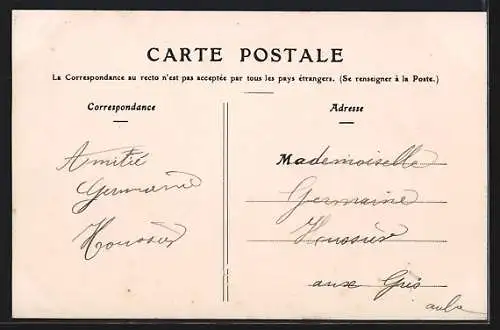 CARTE POSTALE
La Correspondance au recto n'est pas acceptée par tous les pays étrangers. (Se renseigner à la Poste.)
Correspondance
Amitié
Germaine
Houssier
Adresse
Mademoiselle
Germaine
Houssier
aux Gris
aube